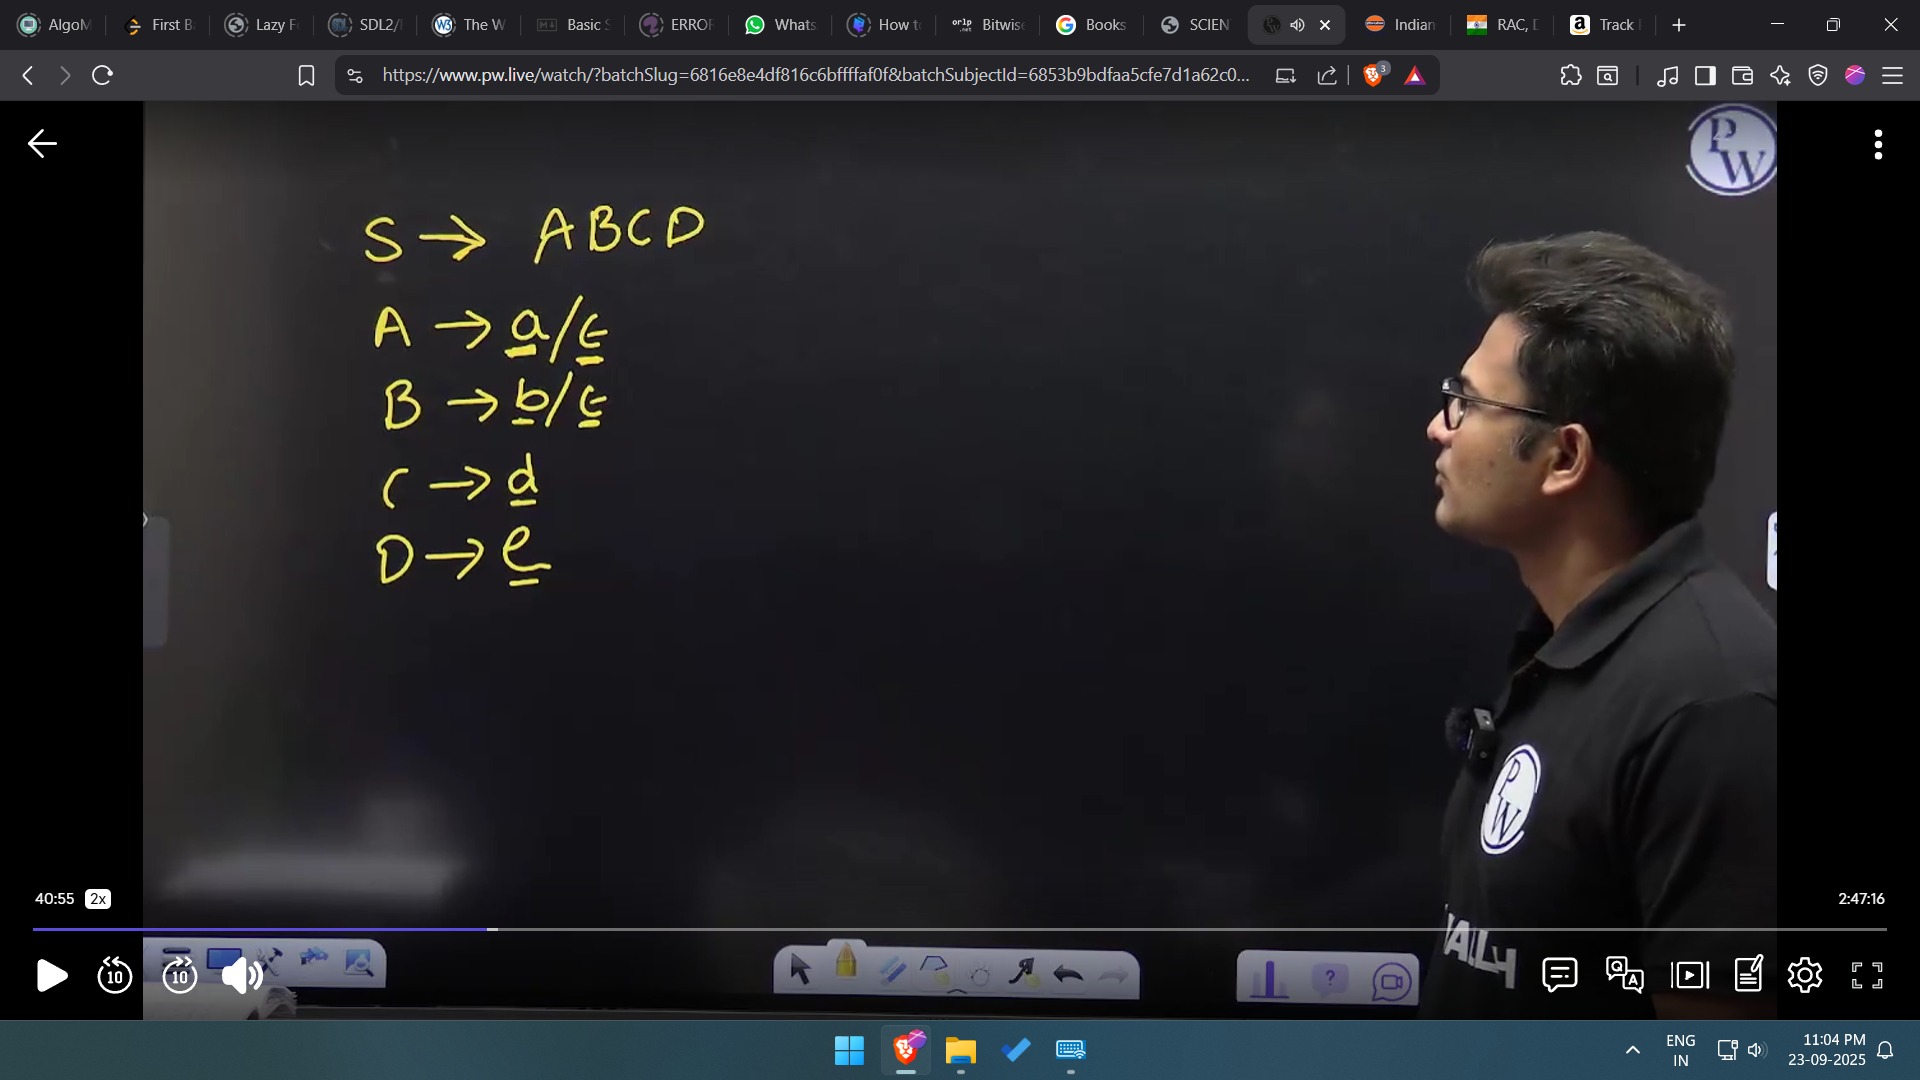 AlgoM
First B
Lazy F
SDL2/
The W
Basic S
ERROR
Whats
How to
Bitwise
Books
SCIEN
Indian
RAC, D
Track
https://www.pw.live/watch/?batchSlug=6816e8e4df816c6bffffaf0f&batchSubjectId=6853b9bdfaa5cfe7d1a62c0...
3
PW
S → ABCD
A → a/ε
B → b/ε
C → d
D → e
PW
40:55 2x
2:47:16
10
10
ENG
IN
11:04 PM
23-09-2025